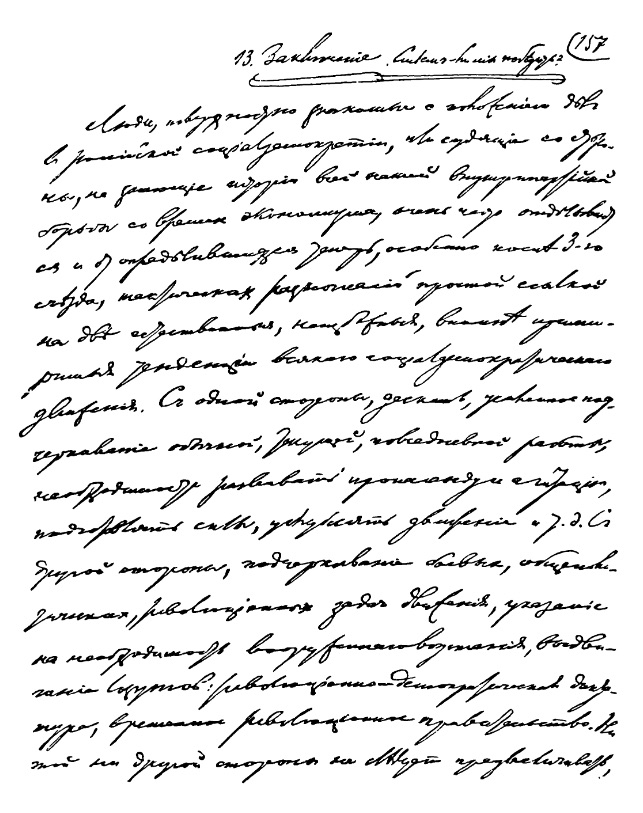 157
13. Заключеніе. Смѣемъ-ли мы побѣдить?
Люди, поверхностно знакомые с положеніем дѣл
в російской соціалдемократіи, или судящіе со сторо-
ны, не знающіе исторіи всей нашей внутрипартійной
борьбы со времен экономизма, очень часто отдѣлывают
ся и от опредѣлившихся теперь, особенно послѣ 3-го
съѣзда, тактических разногласій простой ссылкой
на двѣ естественныя, неизбѣжныя, вполнѣ прими-
римыя тенденціи всякаго соціалдемократическаго
движенія. С одной стороны, дескать, усиленное под-
черкиваніе обычной, текущей, повседневной работы,
необходимости развивать пропаганду и агитацію,
подготовлять силы, углублять движеніе и т. д. С
другой стороны, подчеркиваніе боевых, общеполи-
тических, революціонных задач движенія, указаніе
на необходимость вооруженнаго возстанія, выдви-
ганіе лозунгов: революціонно-демократическая дикта-
тура, временное революціонное правительство. Ни
той ни другой стороны не слѣдует преувеличивать,